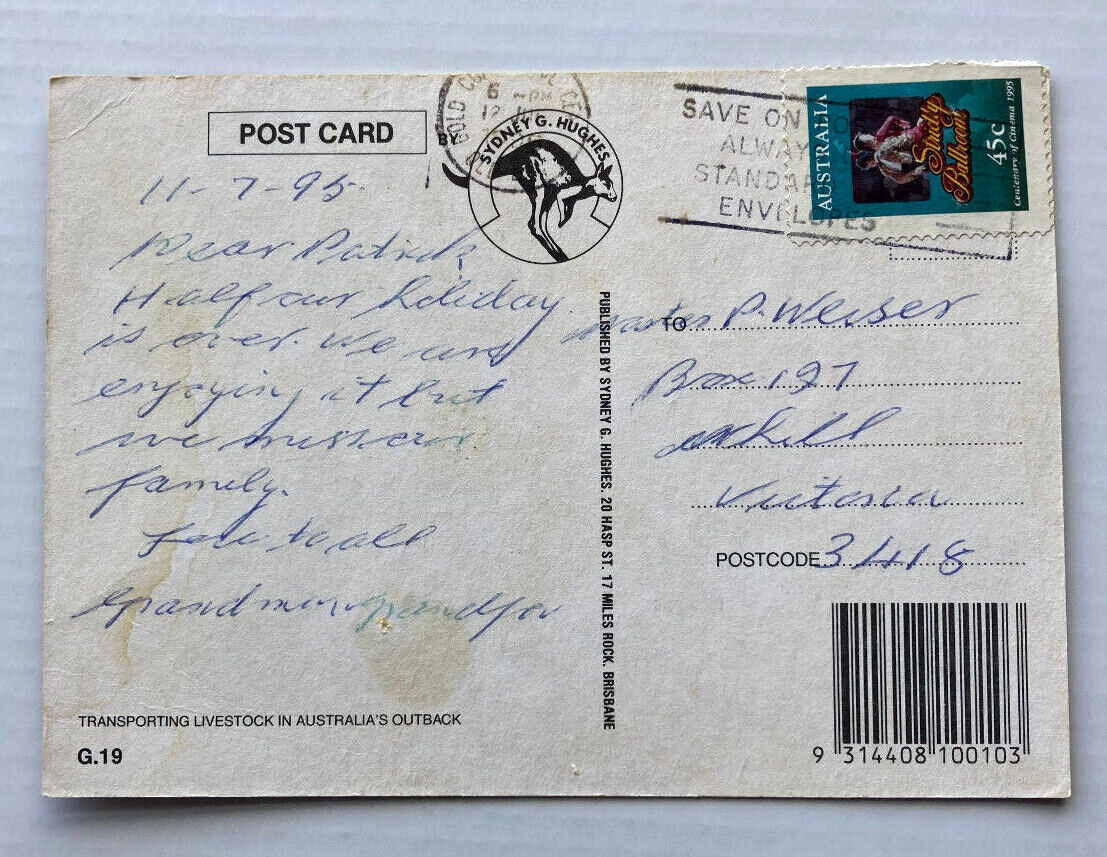 POST CARD
BY
SYDNEY G. HUGHES
11-7-95
Dear Patrick
Half our holiday
is over. We are
enjoying it but
we miss our
family.
Love to all
Grandma Grandfa
TRANSPORTING LIVESTOCK IN AUSTRALIA'S OUTBACK
G.19
PUBLISHED BY SYDNEY G. HUGHES. 20 HASP ST. 17 MILES ROCK. BRISBANE
GOLD
6 PM
12
SAVE ON
ALWAY
STANDAR
ENVELOPES
AUSTRALIA
Strictly
Ballroom
45c
Centenary of Cinema 1995
TO Master P. Weiser
Box 197
Victoria
POSTCODE 3418
9 314408 100103